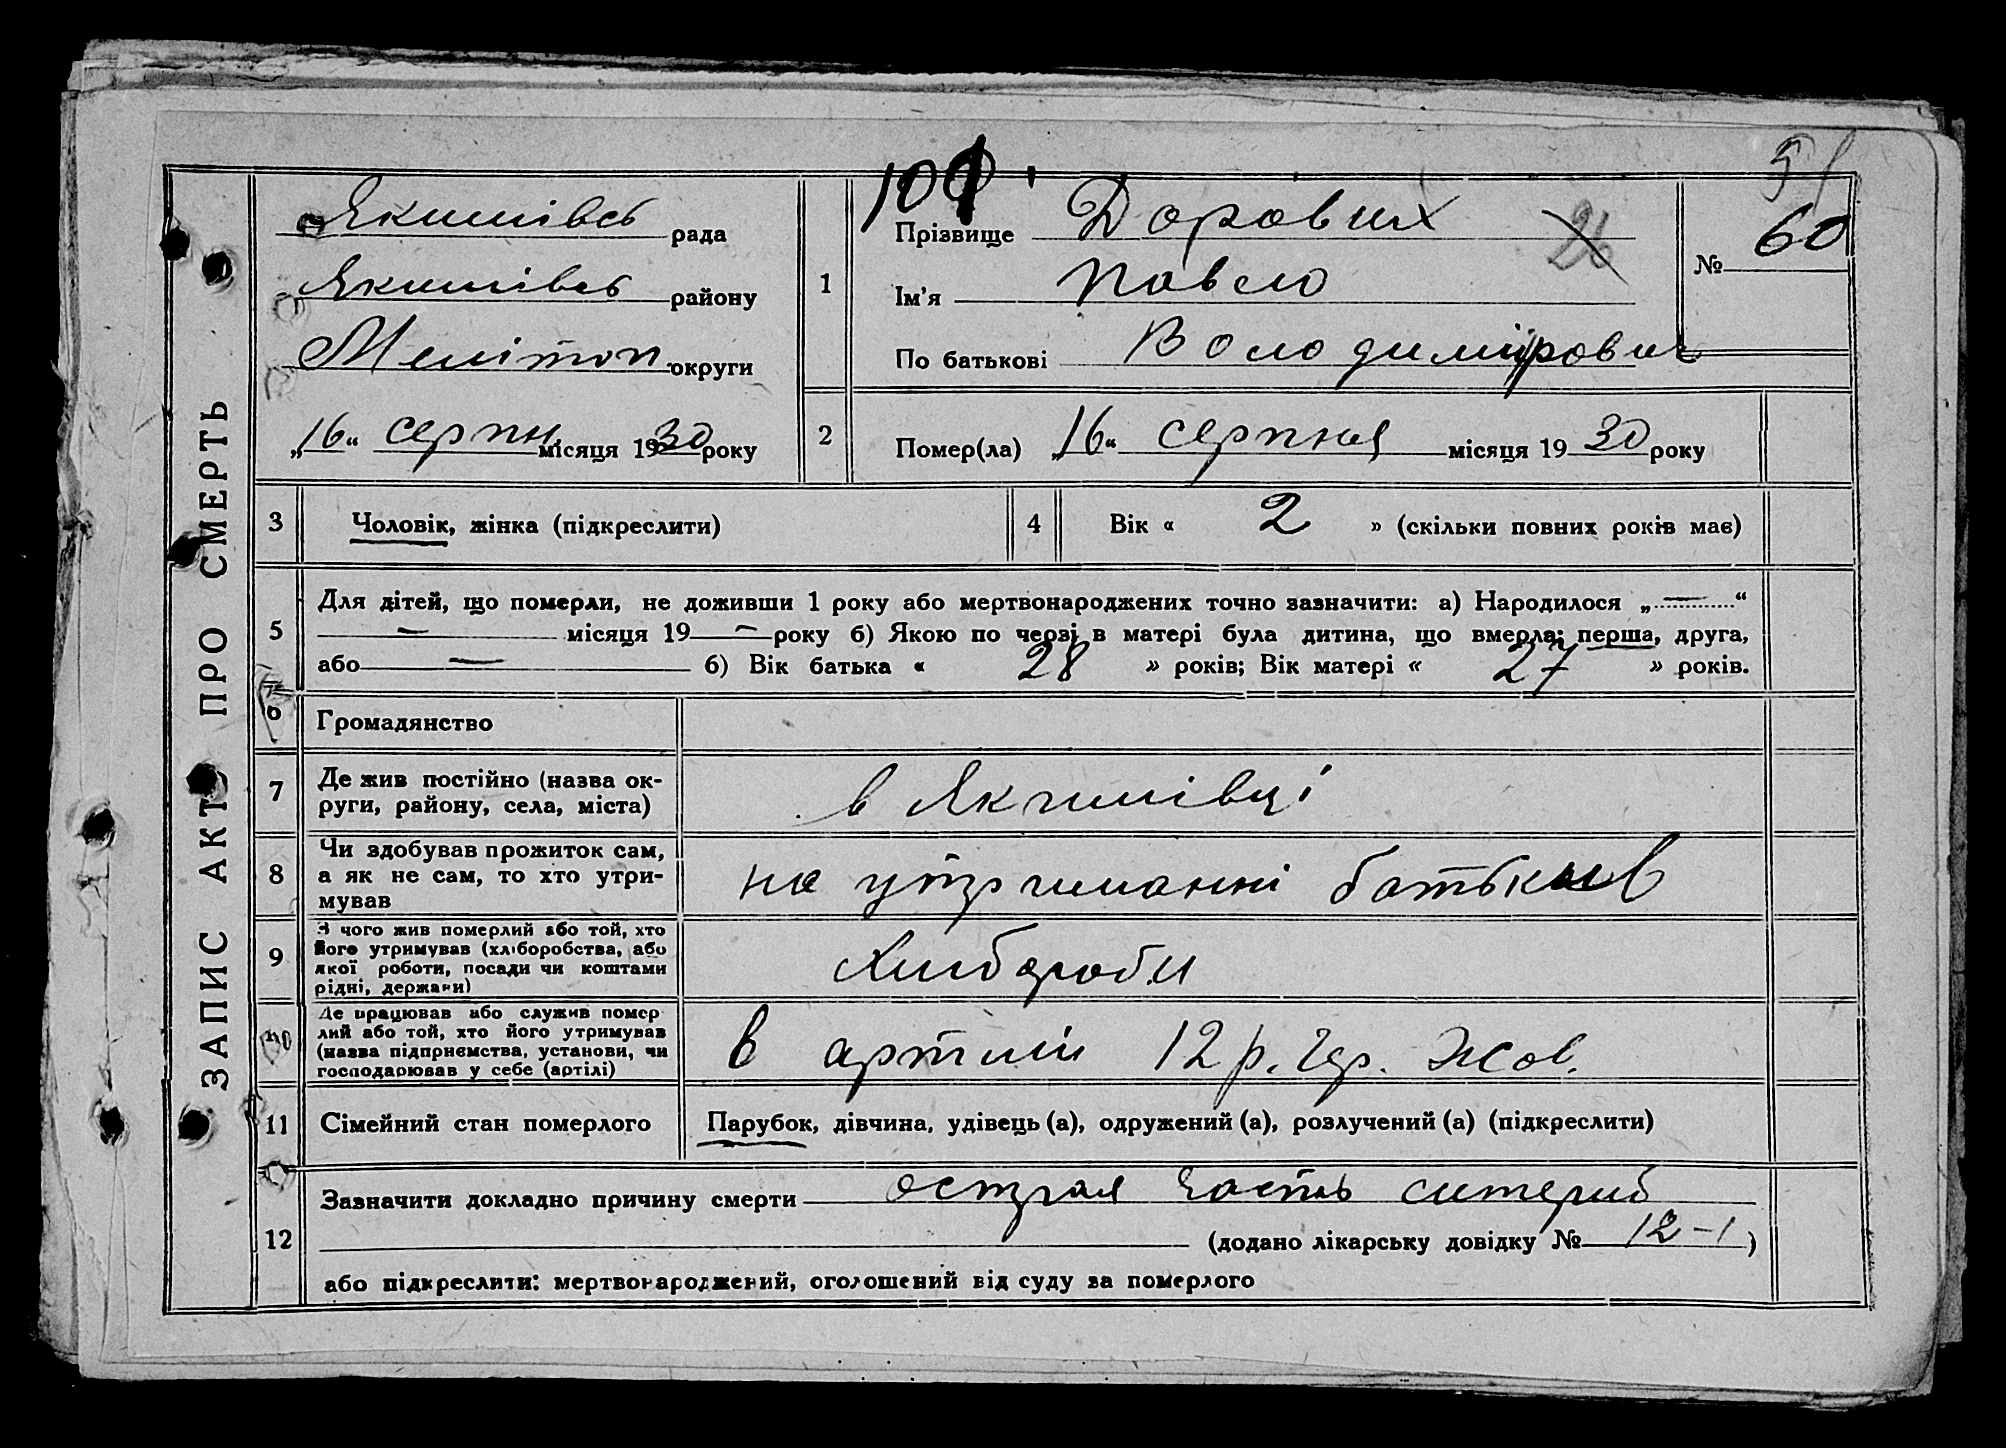 ЗАПИС АКТУ ПРО СМЕРТЬ
51
Якимівсь рада
Якимівсь району
Мелітоп. округи
„16“ серпн. місяця 1930 року
1
Прізвище Дорових
26
№ 60
Ім'я Павело
По батькові Володимірович
2
Помер(ла) „16“ серпня місяця 1930 року
3
Чоловік, жінка (підкреслити)
4
Вік « 2 » (скільки повних років має)
5
Для дітей, що померли, не доживши 1 року або мертвонароджених точно зазначити: а) Народилося „—“
— місяця 19 — року б) Якою по черзі в матері була дитина, що вмерла: перша, друга,
або — б) Вік батька « 28 » років; Вік матері « 27 » років.
6
Громадянство
7
Де жив постійно (назва ок-
руги, району, села, міста)
в Якимівці
8
Чи здобував прожиток сам,
а як не сам, то хто утри-
мував
на утриманні батьків
9
З чого жив померлий або той, хто
його утримував (хліборобства, або
якої роботи, посади чи коштами
рідні, держави)
Хлібороби
10
Де працював або служив помер
лий або той, хто його утримував
(назва підприємства, установи, чи
господарював у себе (артілі)
в артілі 12 р. Жов.
11
Сімейний стан померлого
Парубок, дівчина, удівець (а), одружений (а), розлучений (а) (підкреслити)
12
Зазначити докладно причину смерти острая
(додано лікарську довідку № 12-1)
або підкреслити: мертвонароджений, оголошений від суду за померлого